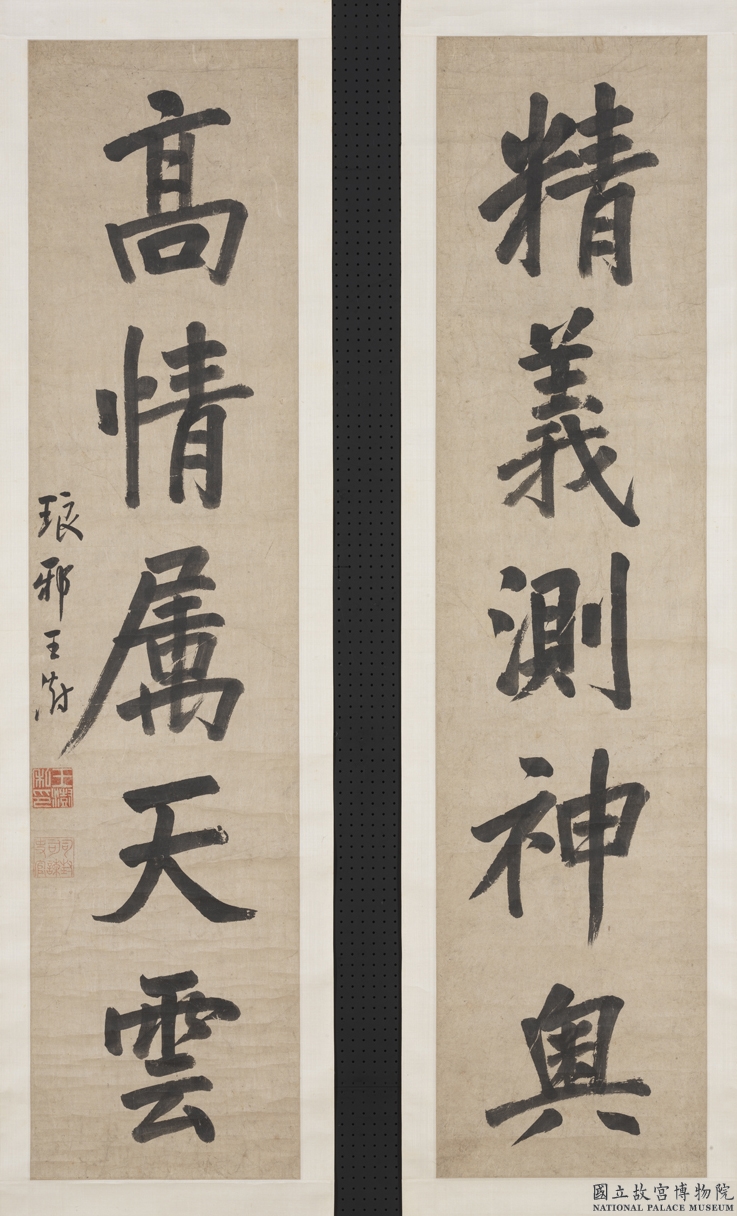 精義測神奧
高情属天雲
琅邪王澍
王澍私印
國立故宮博物院
NATIONAL PALACE MUSEUM